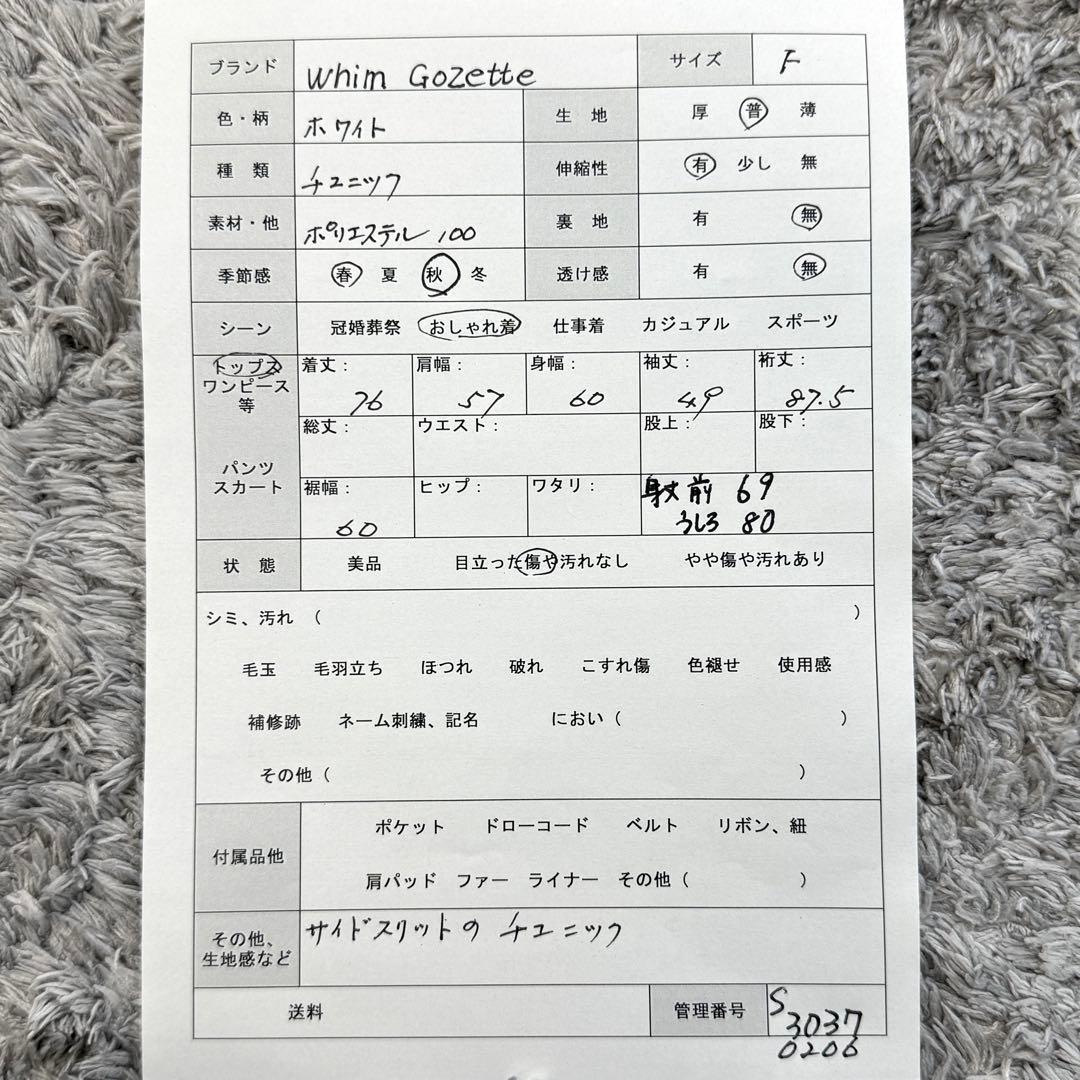 ブランド whim Gozette サイズ F
色・柄 ホワイト 生 地 厚 普 薄
種 類 チュニック 伸縮性 有 少し 無
素材・他 ポリエステル 100 裏 地 有 無
季節感 春 夏 秋 冬 透け感 有 無
シーン 冠婚葬祭 おしゃれ着 仕事着 カジュアル スポーツ
トップス
ワンピース
等
着丈: 肩幅: 身幅: 袖丈: 裄丈:
76 57 60 49 87.5
パンツ
スカート
総丈: ウエスト: 股上: 股下:
裾幅: ヒップ: ワタリ: 身丈 前 69
60 うしろ 80
状 態 美品 目立った傷や汚れなし やや傷や汚れあり
シミ、汚れ ( )
毛玉 毛羽立ち ほつれ 破れ こすれ傷 色褪せ 使用感
補修跡 ネーム刺繍、記名 におい ( )
その他 ( )
付属品他
ポケット ドローコード ベルト リボン、紐
肩パッド ファー ライナー その他 ( )
その他、
生地感など
サイドスリットの チュニック
送料 管理番号 S
3037
0206